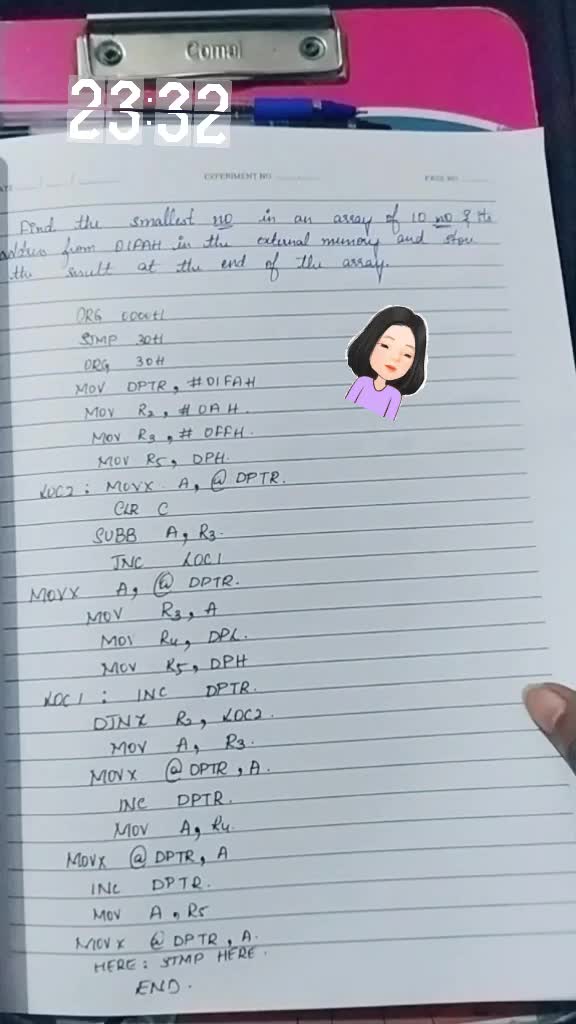 Comal
23:32
ATE
EXPERIMENT NO
PAGE NO
Find the smallest no in an array of 10 no & its
address from 01FAH in the external memory and store
the result at the end of the array.
ORG 0000H
SJMP 30H
ORG 30H
MOV DPTR, #01FAH
MOV R2, #0AH.
MOV R3, #0FFH.
MOV R5, DPH.
LOC2: MOVX A, @DPTR.
CLR C
SUBB A, R3.
JNC LOC1
MOVX A, @DPTR.
MOV R3, A
MOV R4, DPL.
MOV R5, DPH
LOC1: INC DPTR.
DJNX R2, LOC2.
MOV A, R3.
MOVX @DPTR, A.
INC DPTR.
MOV A, R4.
MOVX @DPTR, A
INC DPTR.
MOV A, R5
MOVX @DPTR, A.
HERE: SJMP HERE.
END.